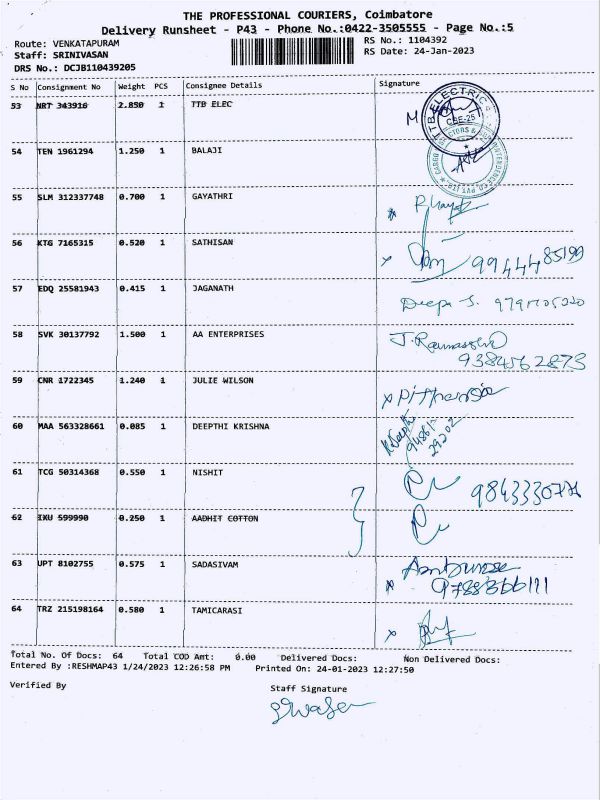 THE PROFESSIONAL COURIERS, Coimbatore
Delivery Runsheet - P43 - Phone No.:0422-3505555 - Page No.:5
Route: VENKATAPURAM RS No.: 1104392
Staff: SRINIVASAN RS Date: 24-Jan-2023
DRS No.: DCJB110439205
S No Consignment No Weight PCS Consignee Details Signature
53 NRT 343916 2.850 1 TTB ELEC
TTB ELECTRIC
CBE-25
54 TEN 1961294 1.250 1 BALAJI
55 SLM 312337748 0.700 1 GAYATHRI
56 KTG 7165315 0.520 1 SATHISAN
9944485199
57 EDQ 25581943 0.415 1 JAGANATH
Deepa S.
58 SVK 30137792 1.500 1 AA ENTERPRISES
9384562873
59 CNR 1722345 1.240 1 JULIE WILSON
60 MAA 563328661 0.085 1 DEEPTHI KRISHNA
61 TCG 50314368 0.550 1 NISHIT
62 IKU 599990 0.250 1 AADHIT COTTON
63 UPT 8102755 0.575 1 SADASIVAM
64 TRZ 215198164 0.580 1 TAMICARASI
Total No. Of Docs: 64 Total COD Amt: 0.00 Delivered Docs: Non Delivered Docs:
Entered By :RESHMAP43 1/24/2023 12:26:58 PM Printed On: 24-01-2023 12:27:50
Verified By Staff Signature